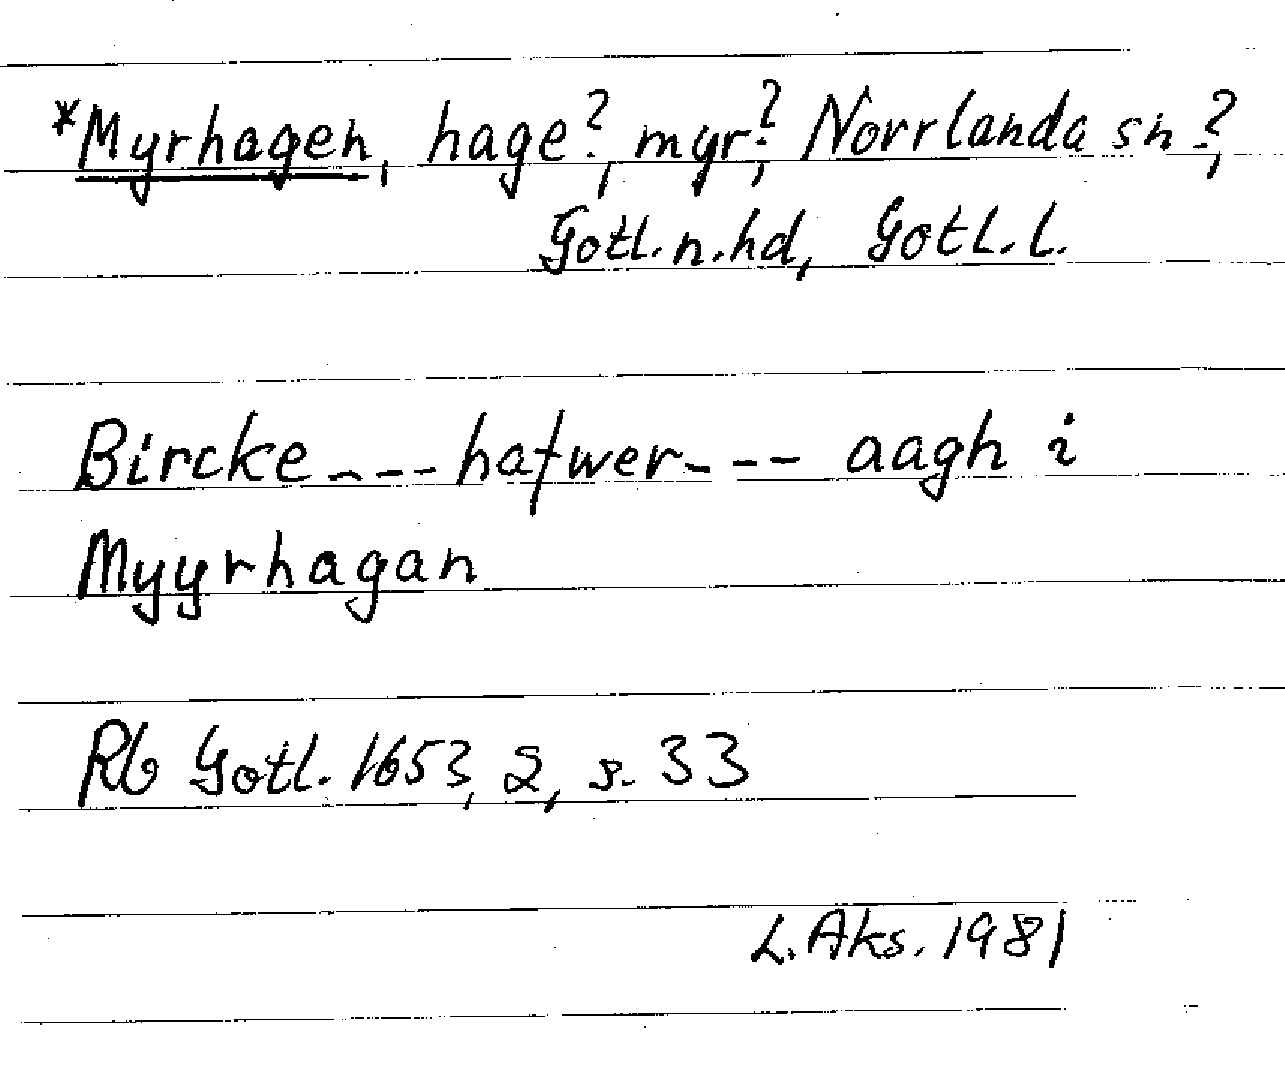 *Myrhagen, hage?, myr?, Norrlanda sn?,
Gotl. n. hd, Gotl. l.
Bircke --- hafwer --- aagh i
Myyrhagan
Rb Gotl. 1653, 2, s. 33
L. Aks. 1981